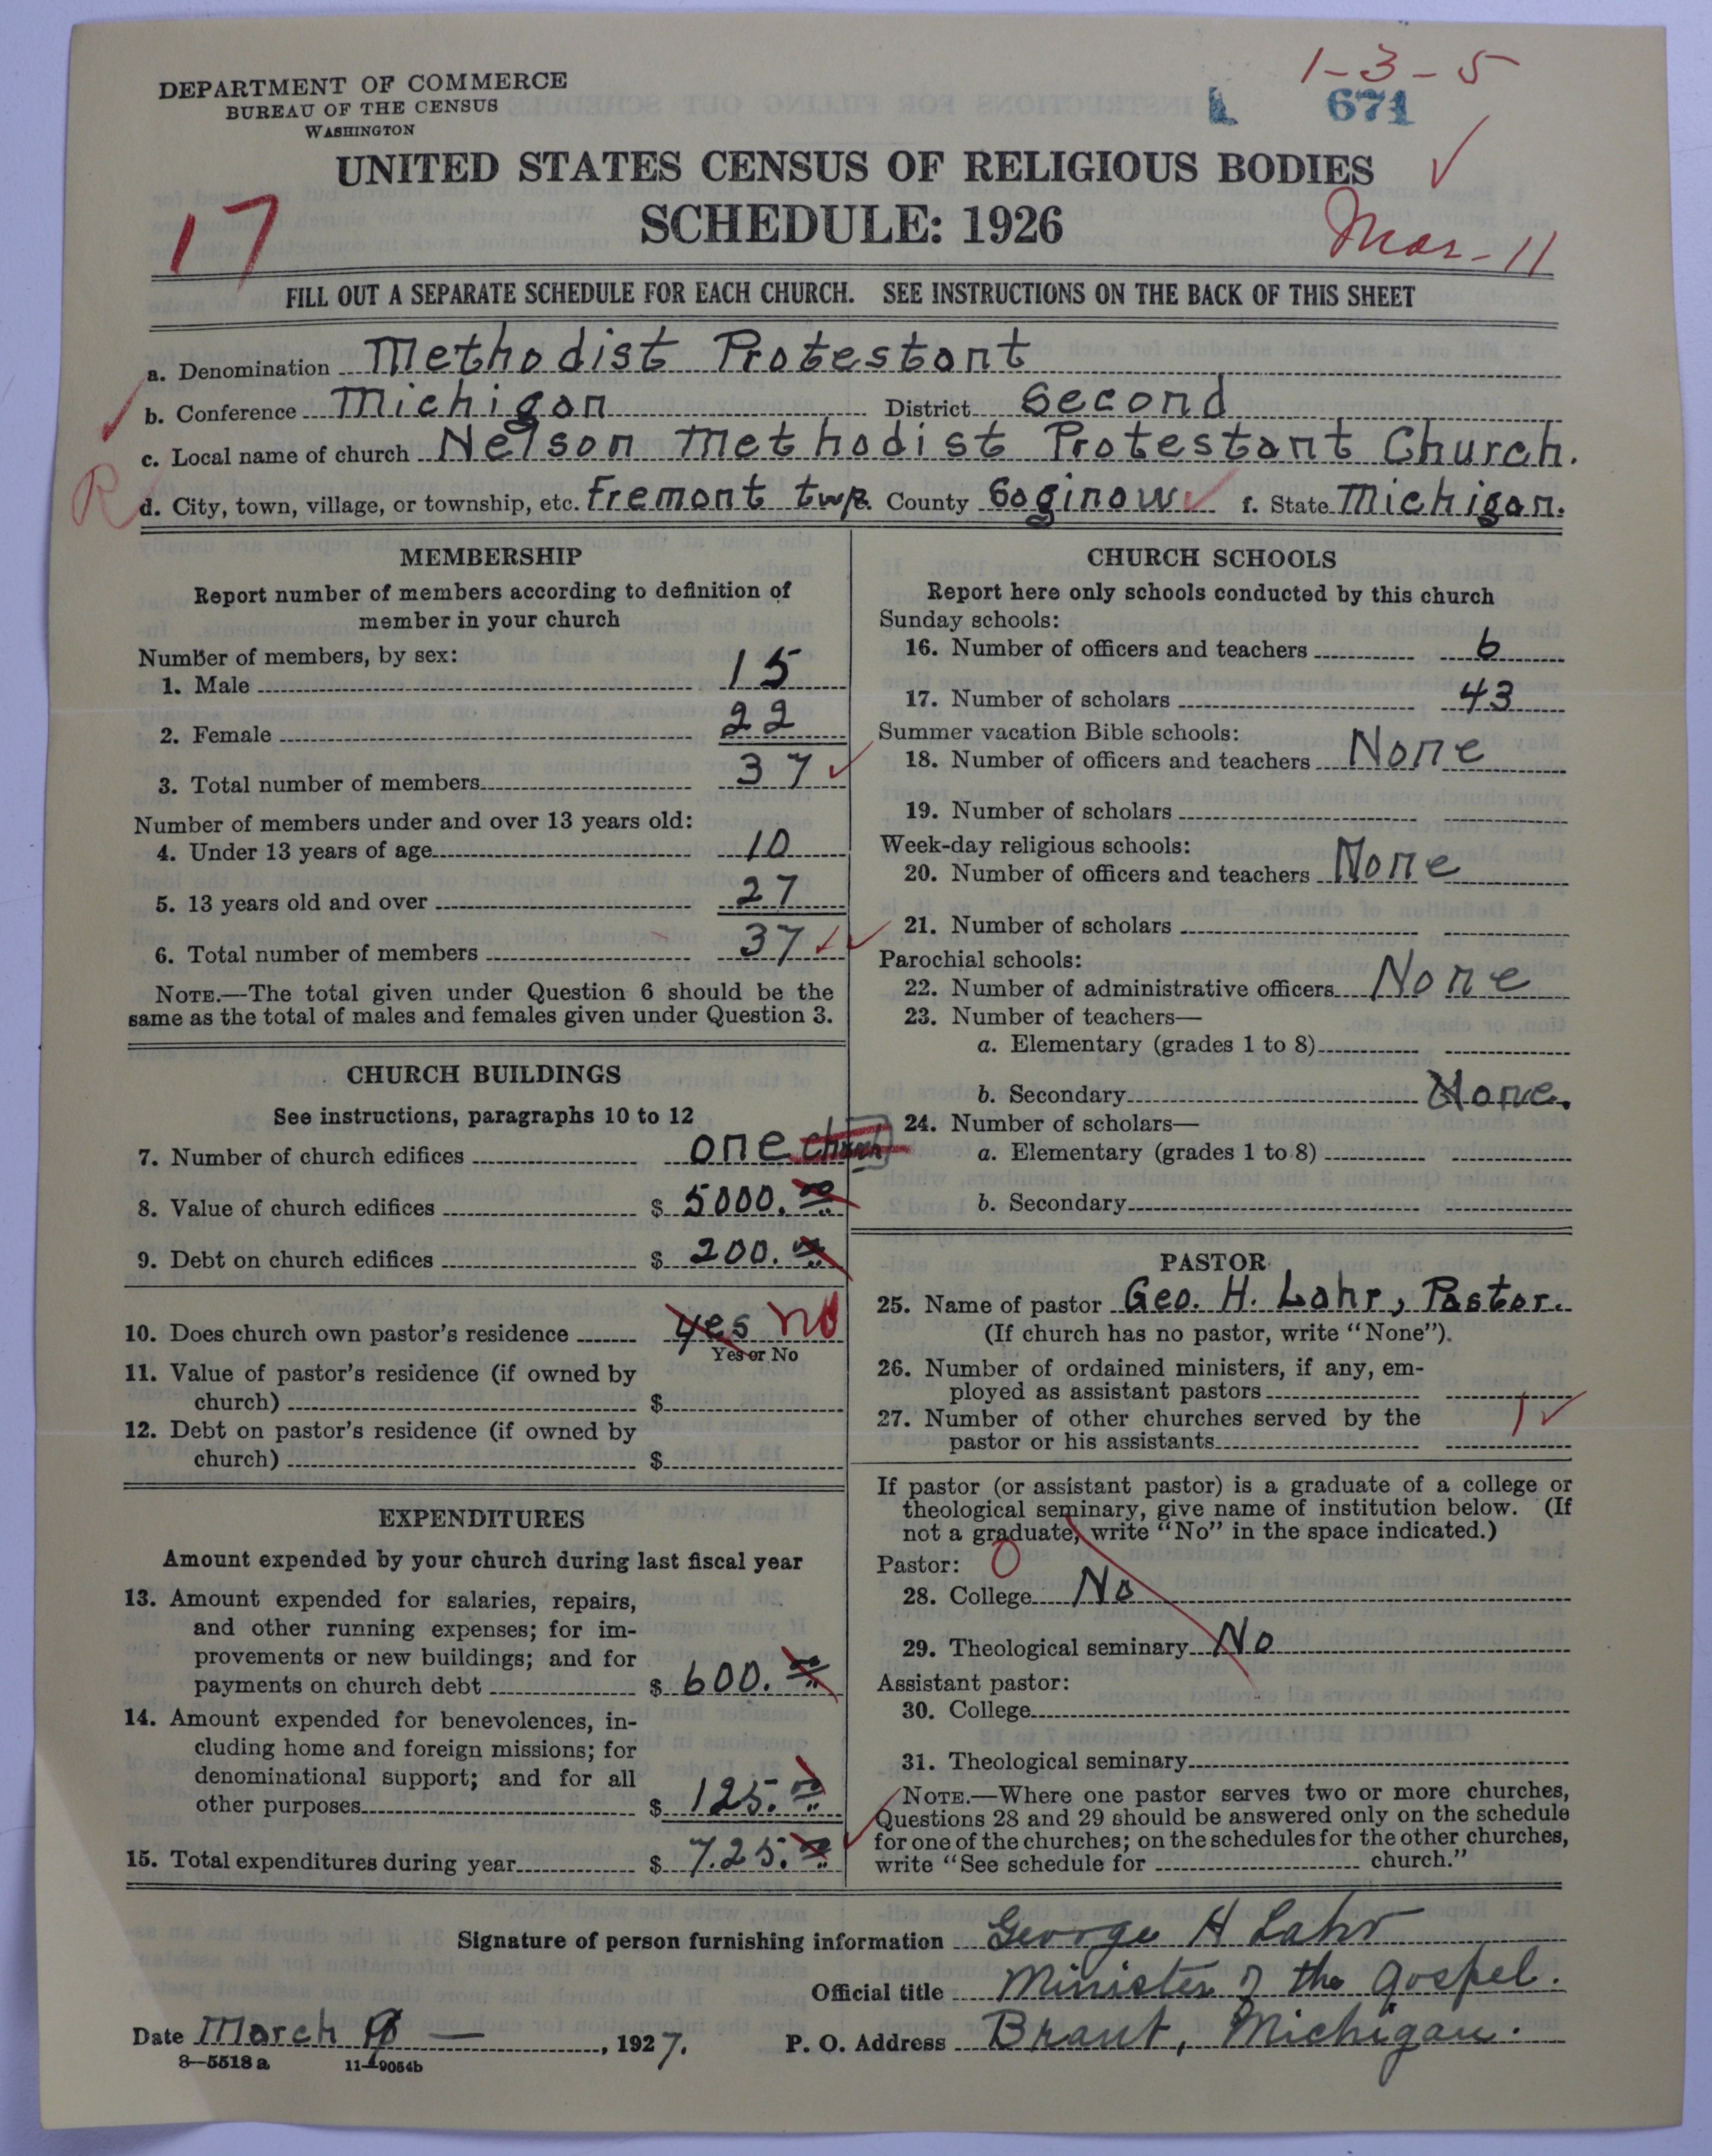 1-3-5
671
DEPARTMENT OF COMMERCE
BUREAU OF THE CENSUS
WASHINGTON
UNITED STATES CENSUS OF RELIGIOUS BODIES
SCHEDULE: 1926
17
Mar-11
FILL OUT A SEPARATE SCHEDULE FOR EACH CHURCH. SEE INSTRUCTIONS ON THE BACK OF THIS SHEET
a. Denomination Methodist Protestant
b. Conference Michigan District Second
c. Local name of church Nelson Methodist Protestant Church.
R
d. City, town, village, or township, etc. Fremont twp. County Saginaw f. State Michigan.
MEMBERSHIP
Report number of members according to definition of
member in your church
Number of members, by sex:
1. Male 15
2. Female 22
3. Total number of members 37
Number of members under and over 13 years old:
4. Under 13 years of age 10
5. 13 years old and over 27
6. Total number of members 37
NOTE.—The total given under Question 6 should be the
same as the total of males and females given under Question 3.
CHURCH BUILDINGS
See instructions, paragraphs 10 to 12
7. Number of church edifices one church
8. Value of church edifices $ 5000.00
9. Debt on church edifices $ 200.00
10. Does church own pastor's residence yes no
Yes or No
11. Value of pastor's residence (if owned by
church) $
12. Debt on pastor's residence (if owned by
church) $
EXPENDITURES
Amount expended by your church during last fiscal year
13. Amount expended for salaries, repairs,
and other running expenses; for im-
provements or new buildings; and for
payments on church debt $ 600.00
14. Amount expended for benevolences, in-
cluding home and foreign missions; for
denominational support; and for all
other purposes $ 125.00
15. Total expenditures during year $ 725.00
CHURCH SCHOOLS
Report here only schools conducted by this church
Sunday schools:
16. Number of officers and teachers 6
17. Number of scholars 43
Summer vacation Bible schools:
18. Number of officers and teachers None
19. Number of scholars
Week-day religious schools:
20. Number of officers and teachers None
21. Number of scholars
Parochial schools:
22. Number of administrative officers None
23. Number of teachers—
a. Elementary (grades 1 to 8)
b. Secondary None.
24. Number of scholars—
a. Elementary (grades 1 to 8)
b. Secondary
PASTOR
25. Name of pastor Geo. H. Lahr, Pastor.
(If church has no pastor, write "None").
26. Number of ordained ministers, if any, em-
ployed as assistant pastors
27. Number of other churches served by the 1
pastor or his assistants
If pastor (or assistant pastor) is a graduate of a college or
theological seminary, give name of institution below. (If
not a graduate, write "No" in the space indicated.)
Pastor: O
28. College No
29. Theological seminary No
Assistant pastor:
30. College
31. Theological seminary
NOTE.—Where one pastor serves two or more churches,
Questions 28 and 29 should be answered only on the schedule
for one of the churches; on the schedules for the other churches,
write "See schedule for church."
Signature of person furnishing information George H Lahr
Official title Minister of the Gospel.
Date March , 1927. P. O. Address Brant, Michigan.
8—5518 a 11—9054b